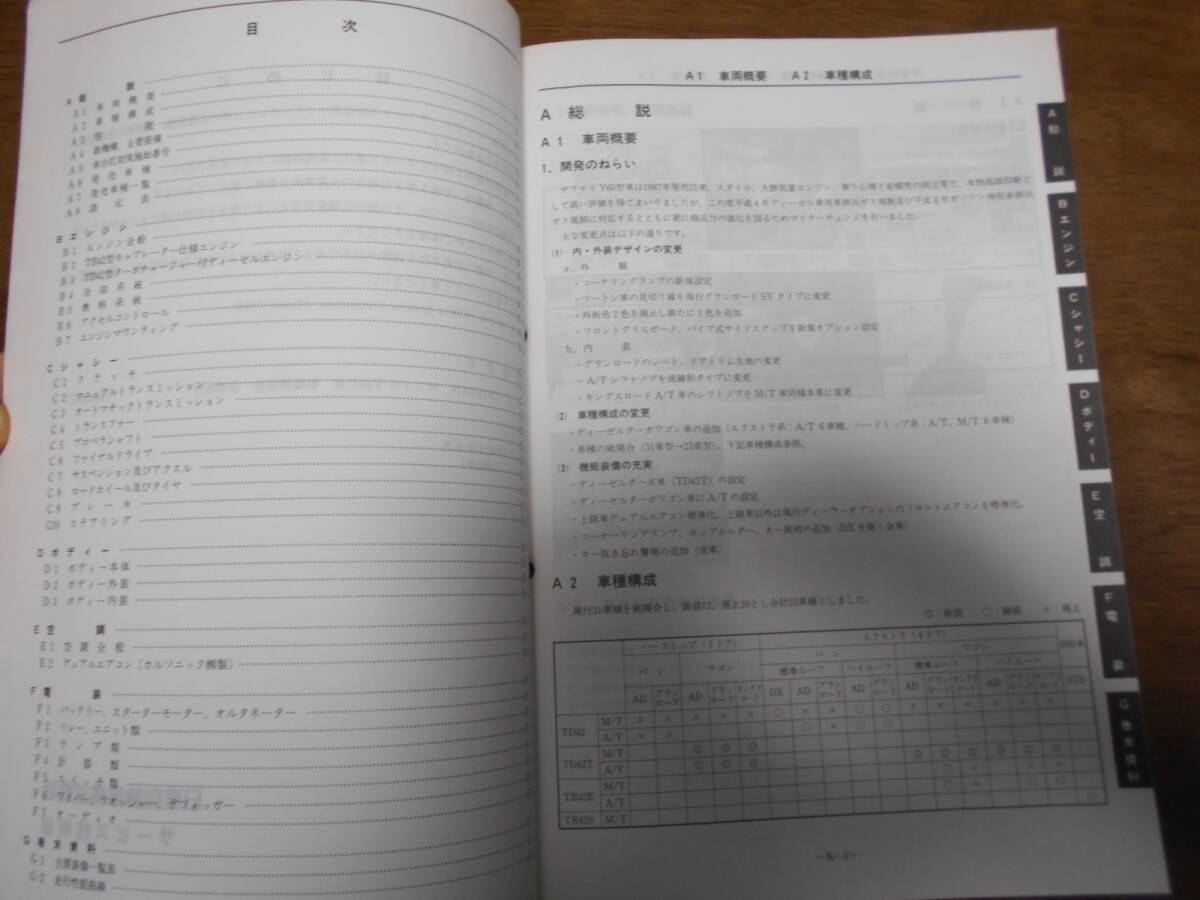 目　次
A 総　説
A1 車両概要
A2 車種構成
A3 性　能
A4 新機構、主要装備
A5 車台打刻実施始番号
A6 発売車種
A7 発売車種一覧
A8 諸元表
B エンジン
B1 エンジン全般
B2 TB42型キャブレーター仕様エンジン
B3 TD42型ターボチャージャー付ディーゼルエンジン
B4 冷却系統
B5 燃料系統
B6 アクセルコントロール
B7 エンジンマウンティング
C シャシー
C1 クラッチ
C2 マニュアルトランスミッション
C3 オートマチックトランスミッション
C4 トランスファー
C5 プロペラシャフト
C6 ファイナルドライブ
C7 サスペンション及びアクスル
C8 ロードホイール及びタイヤ
C9 ブレーキ
C10 ステアリング
D ボディー
D1 ボディー本体
D2 ボディー外装
D3 ボディー内装
E 空　調
E1 空調全般
E2 デュアルエアコン〔カルソニック㈱製〕
F 電　装
F1 バッテリー、スターターモーター、オルタネーター
F2 リレー、ユニット類
F3 ランプ類
F4 計器類
F5 スイッチ類
F6 ワイパー、ウオッシャー、デフォッガー
F7 オーディオ
G 巻末資料
G1 主要装備一覧表
G2 走行性能曲線
A1 車両概要　A2 車種構成
A 総　説
A1 車両概要
1. 開発のねらい
サファリY60型車は1987年発売以来、スタイル、大排気量エンジン、乗り心地と走破性の両立等で、本格高級四駆と
して高い評価を得てまいりましたが、この度平成4年ディーゼル乗用車排出ガス規制及び平成4年ガソリン商用車排出
ガス規制に対応するとともに更に商品力の強化を図るためマイナーチェンジを行いました。
主な変更点は以下の通りです。
(1) 内・外装デザインの変更
a. 外　観
・コーナリングランプの新規設定
・ツートン車の見切り線を現行グランロードSVタイプに変更
・外板色2色を廃止し新たに1色を追加
・フロントグリルガード、パイプ式サイドステップを新規オプション設定
b. 内　装
・グランロードのシート、ドアトリム生地の変更
・A/Tシフトノブを流線形タイプに変更
・キングスロードA/T車のシフトノブをM/T車同様本革に変更
(2) 車種構成の変更
・ディーゼルターボワゴン車の追加（エクストラ系：A/T 6車種、ハードトップ系：A/T、M/T 6車種）
・車種の統廃合（31車型→23車型）。下記車種構成参照。
(3) 機能装備の充実
・ディーゼルターボ車（TD42T）の設定
・ディーゼルターボワゴン車にA/Tの設定
・上級車デュアルエアコン標準化、上級車以外は現行ディーラーオプションのフロントエアコンを標準化。
・コーナーリングランプ、カップホルダー、キー照明の追加（DXを除く全車）
・キー抜き忘れ警報の追加（全車）
A2 車種構成
現行31車種を統廃合し、新設12、廃止20とし合計23車種としました。
◎：新設　○：継続　×：廃止
ハードトップ（2ドア）　エクストラ（4ドア）
バン　ワゴン　バン　ワゴン
標準ルーフ　ハイルーフ　標準ルーフ　ハイルーフ
AD　グランロード　AD　グランロード　キングスロード　DX　AD　グランロード　AD　グランロード　AD　グランロード　キングスロード　AD　グランロード　キングスロード　STD
TD42　M/T
A/T
TD42T　M/T
A/T
TB42E　M/T
A/T
TB42S　M/T
—A-1—
A 総説
B エンジン
C シャシー
D ボディー
E 空調
F 電装
G 巻末資料